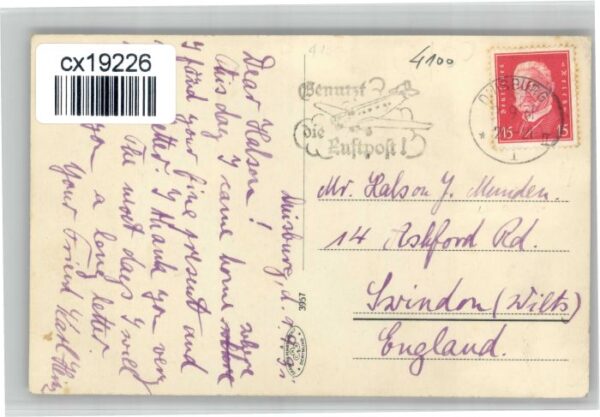 cx19226
4100
Benutzt
die
Luftpost!
DUISBURG
15 15
Duisburg, d.
Dear Halson!
this day I came home where
I find your fine present and
letter I thank you very
The next days I will
you a long letter.
Your Friend Karl Heinz
3957
Mr. Halson J. Munden.
14 Ashford Rd.
Swindon (Wilts)
England.